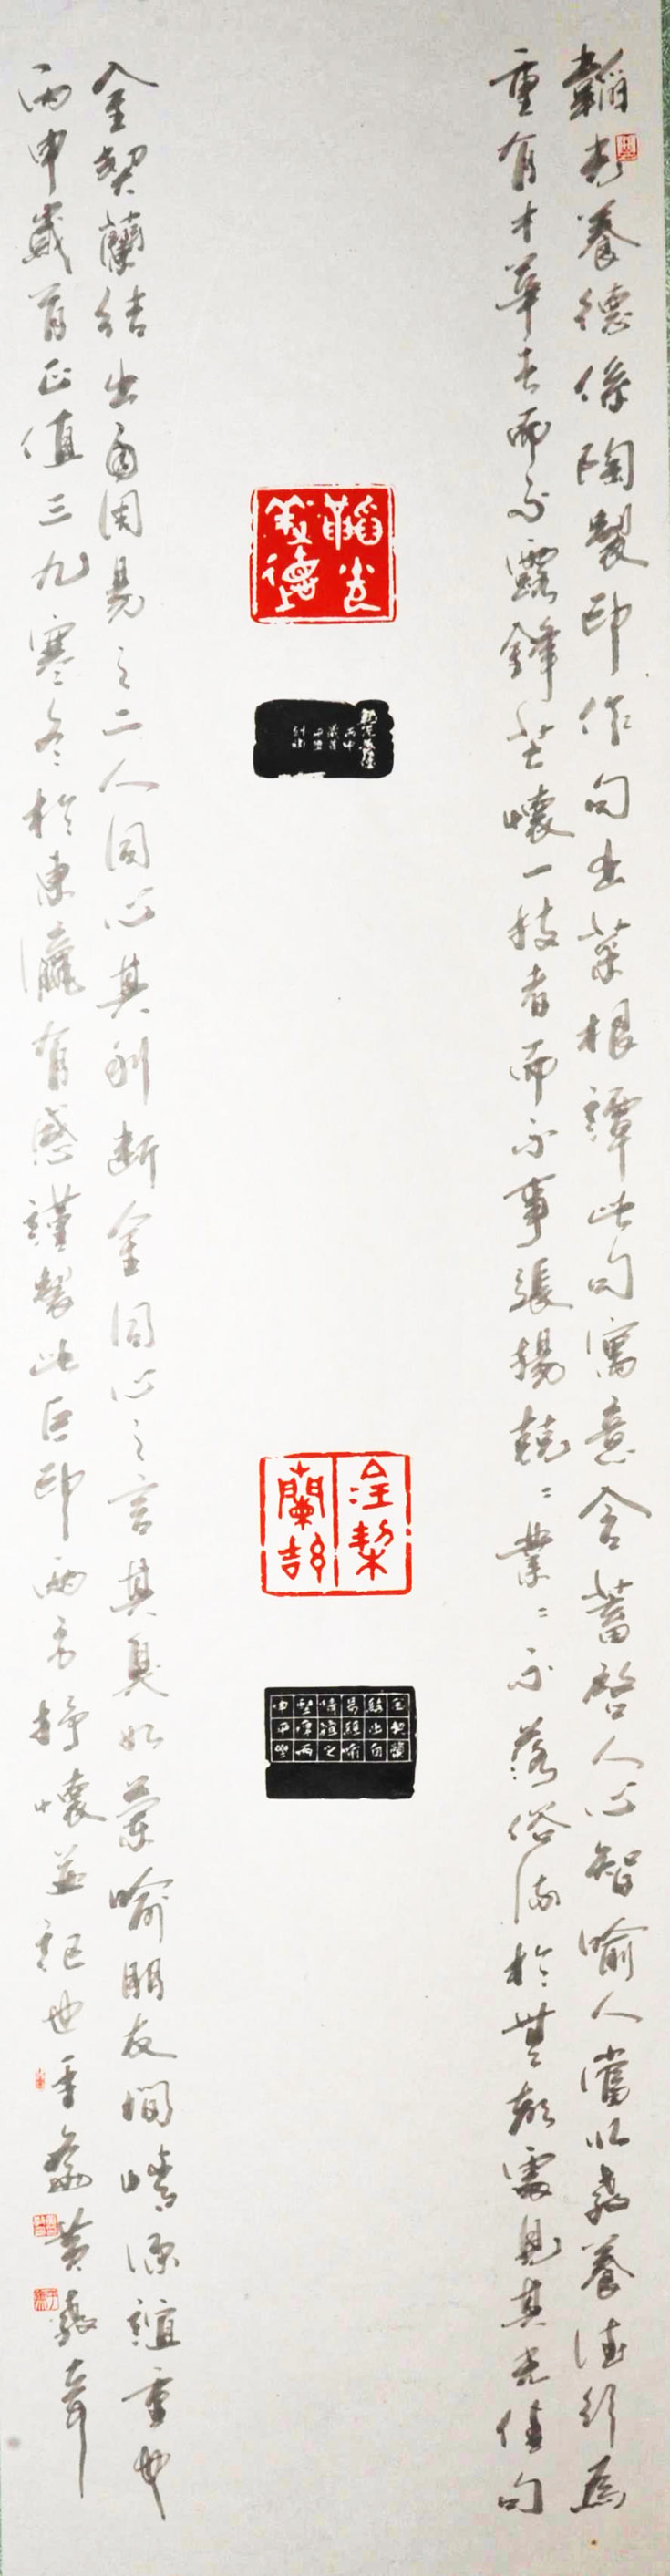 韜光養德係陶製印作句出菜根譚此句寓意含蓄啓人心智喻人當以教養德行為
重有才華者而不露鋒芒懷一技者而不事張揚兢〻業〻不落俗流於無聲處見其光佳句
韜光養德
金契蘭結
金契蘭結出自周易之二人同心其利斷金同心之言其臭如蘭喻朋友間情深誼重也
丙申歲首正值三九寒冬於東瀛有感謹製此巨印兩方抒懷並記也 黃